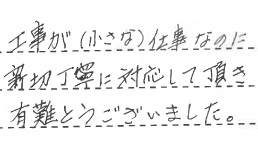 工事が(小さな)仕事なのに
親切丁寧に対応して頂き
有難とうございました。